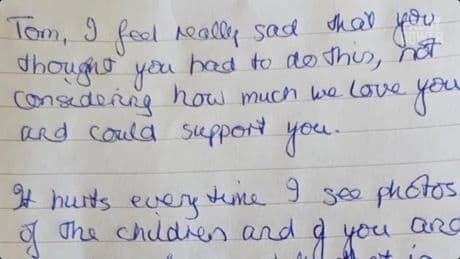 Tom, I feel really sad that you
thought you had to do this, not
considering how much we love you
and could support you.
It hurts every time I see photos
of the children and of you and